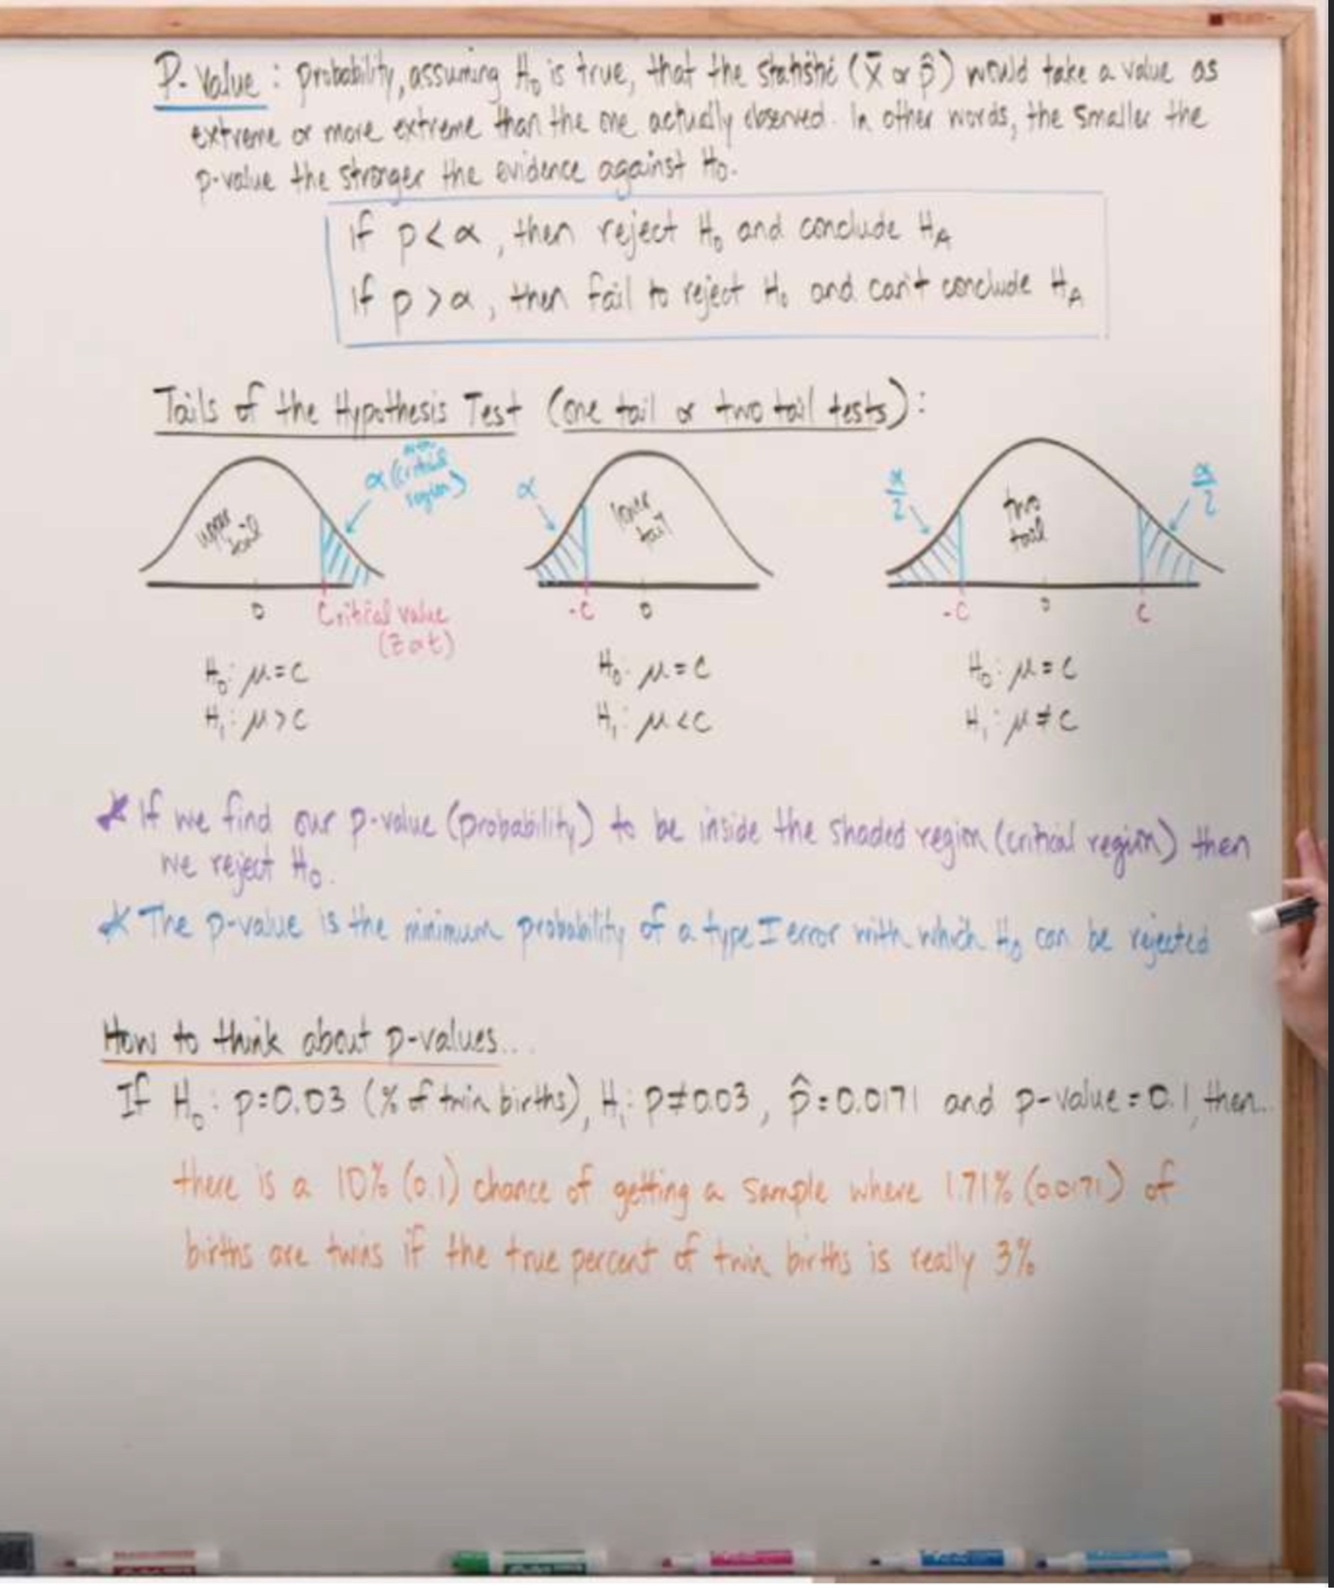 P-Value : probability, assuming H₀ is true, that the statistic (x̄ or p̂) would take a value as
extreme or more extreme than the one actually observed. In other words, the smaller the
p-value the stronger the evidence against H₀.
If p < α, then reject H₀ and conclude H_A
If p > α, then fail to reject H₀ and can't conclude H_A
Tails of the Hypothesis Test (one tail or two tail tests):
α (critical region)
upper tail
0
Critical value
(z or t)
H₀: μ = c
H₁: μ > c
α
lower tail
-c
0
H₀: μ = c
H₁: μ < c
α/2
two tail
α/2
-c
0
c
H₀: μ = c
H₁: μ ≠ c
* If we find our p-value (probability) to be inside the shaded region (critical region) then
we reject H₀.
* The p-value is the minimum probability of a type I error with which H₀ can be rejected
How to think about p-values...
If H₀: p=0.03 (% of twin births), H₁: p≠0.03, p̂=0.0171 and p-value=0.1, then...
there is a 10% (0.1) chance of getting a sample where 1.71% (0.0171) of
births are twins if the true percent of twin births is really 3%